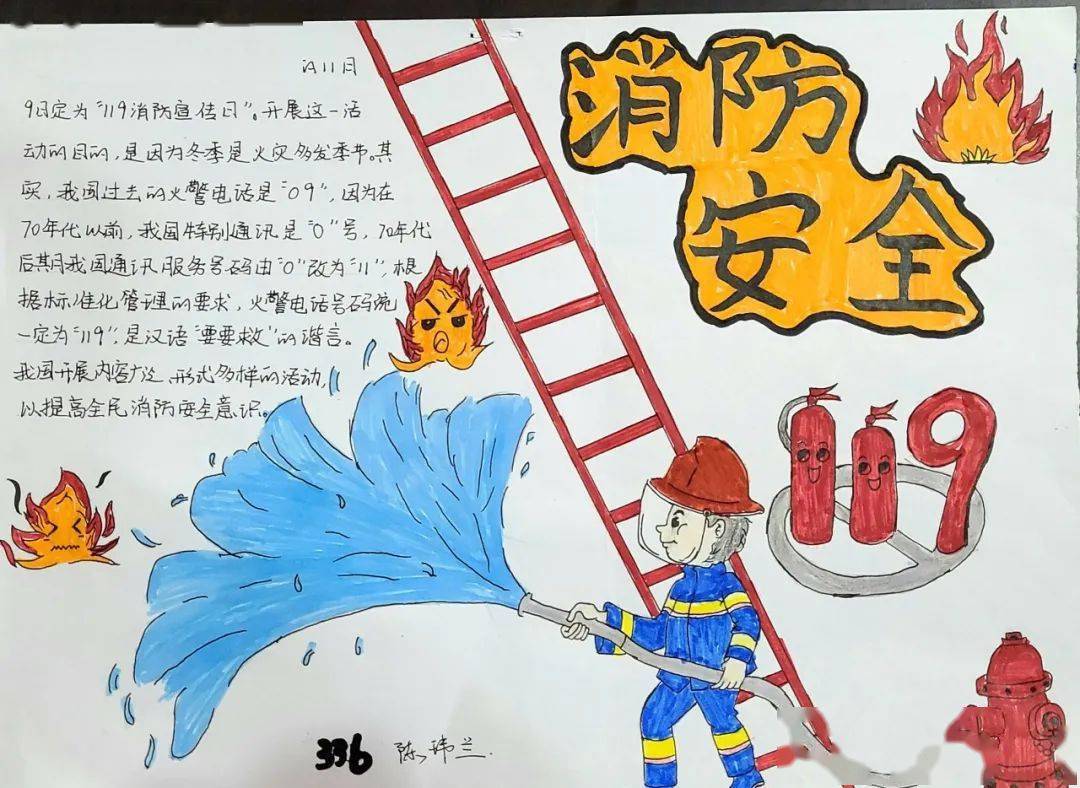 11月
9日定为"119消防宣传日"。开展这一活
动的目的,是因为冬季是火灾多发季节。其
实,我国过去的火警电话是"09",因为在
70年代以前,我国特别通讯是"0"号,70年代
后期我国通讯服务号码由"0"改为"11",根
据标准化管理的要求,火警电话号码统
一定为"119",是汉语"要要救"的谐音。
我国开展内容广泛、形式多样的活动,
以提高全民消防安全意识。
消防
安全
119
336 陈玮兰.